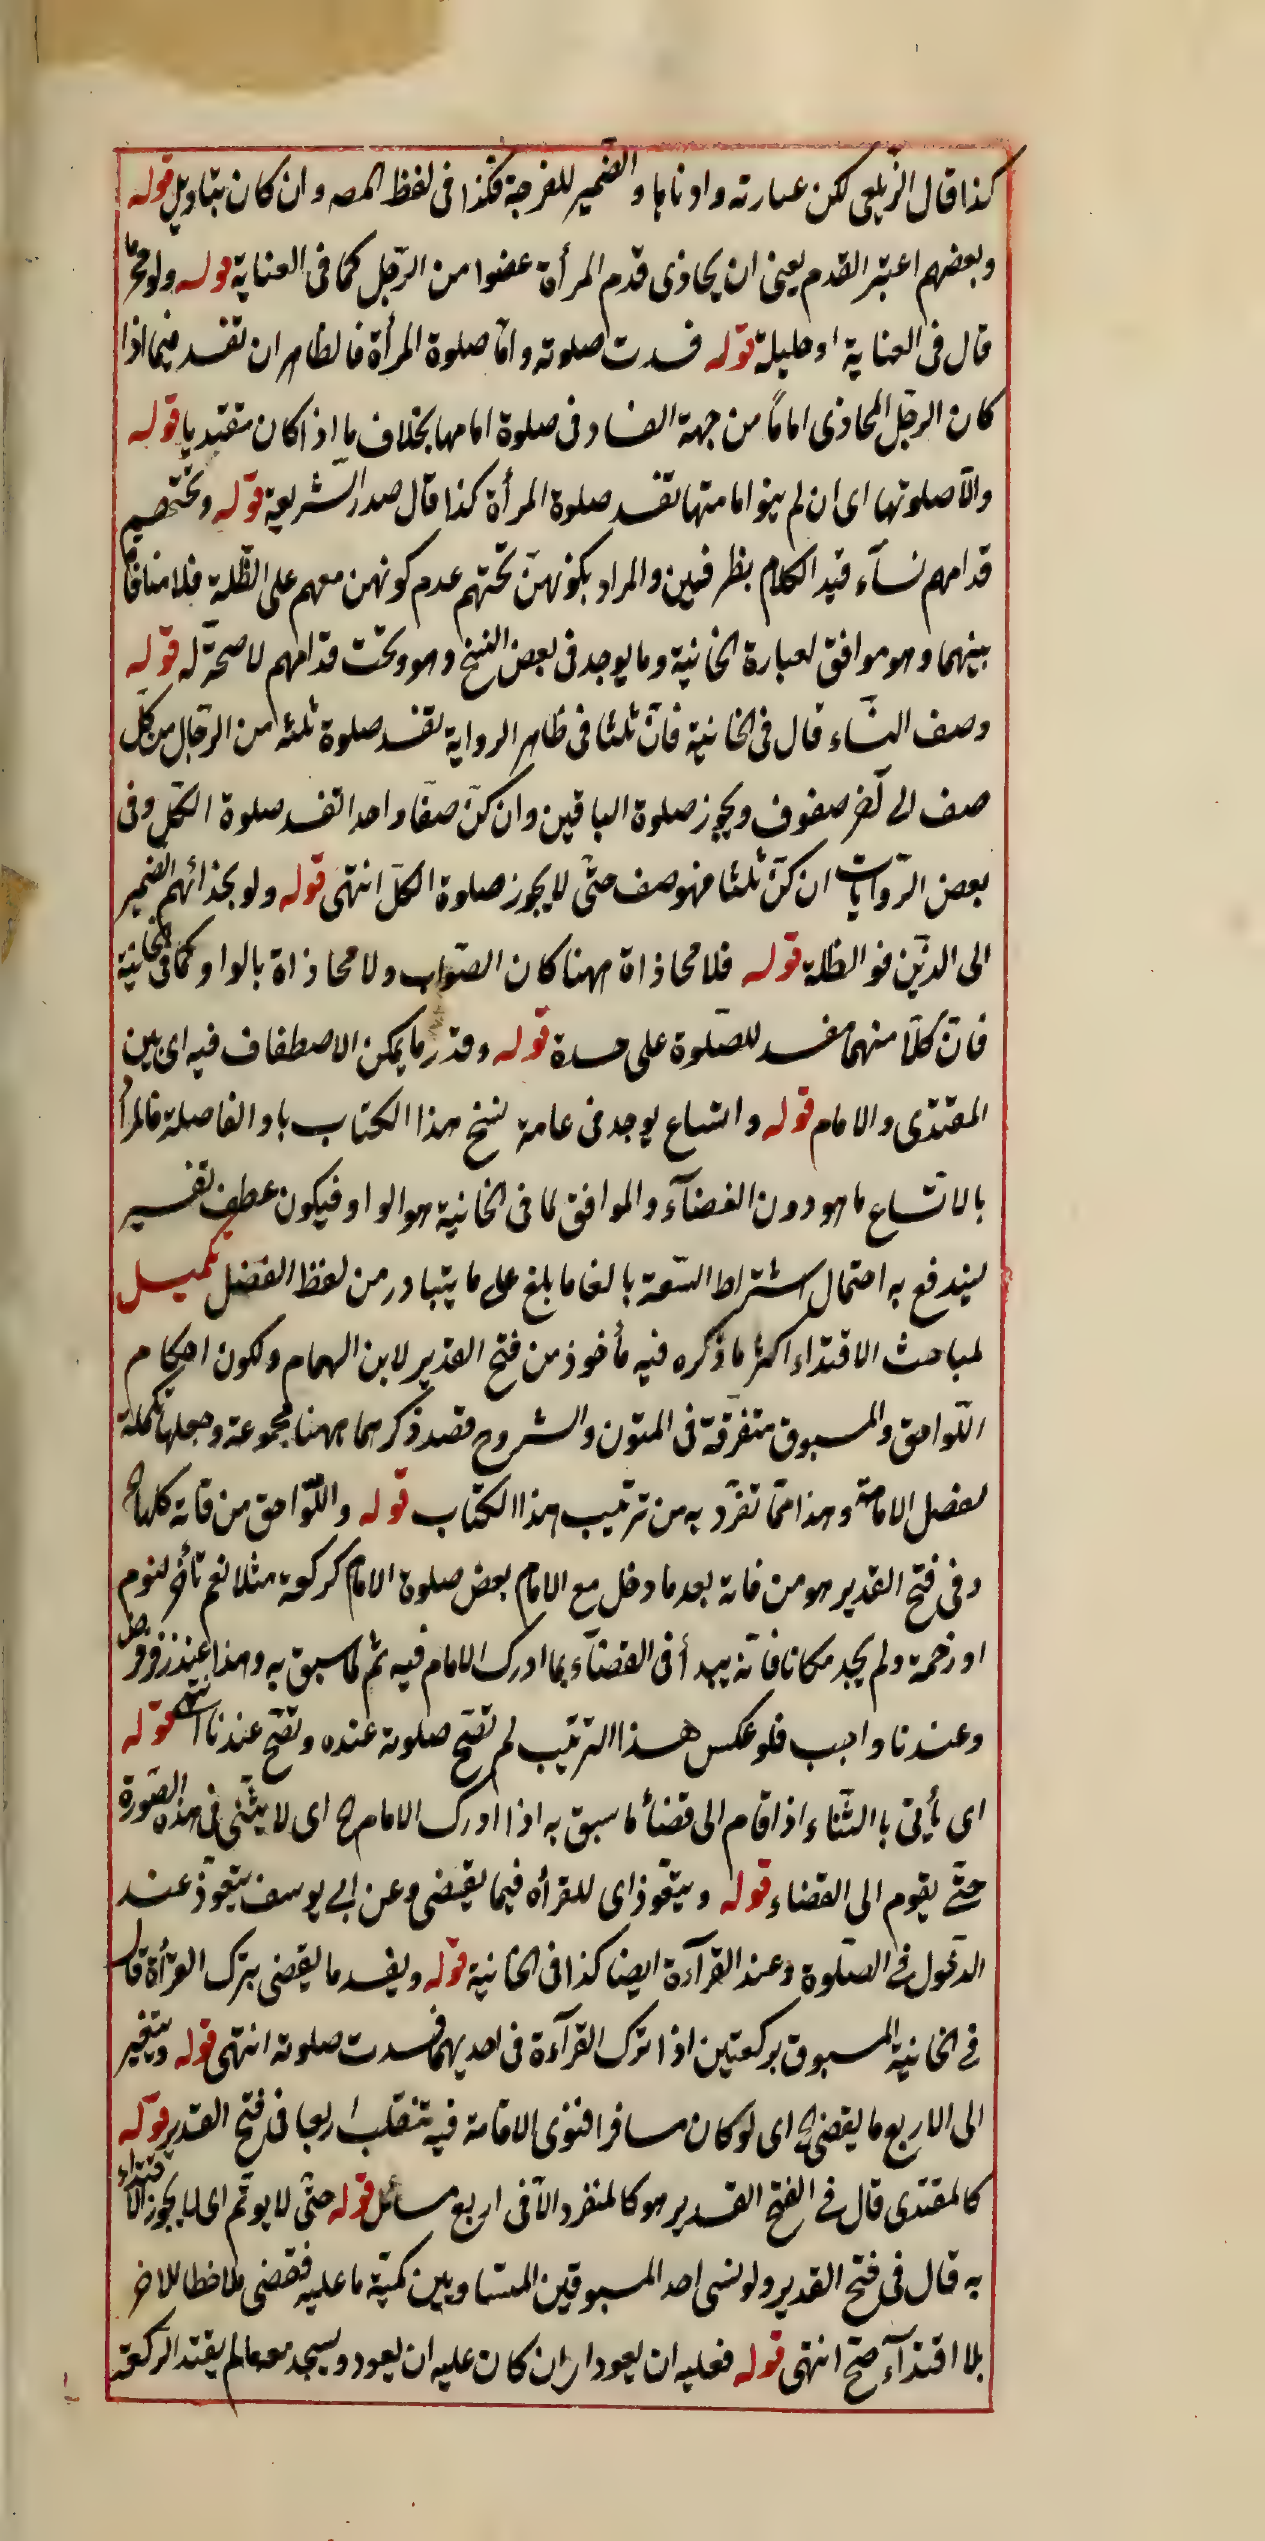 كذا قال الزيلعي لكن عبارته وادناها والضمير للفرجة فكذا في لفظ المصه وان كان بتاويل قوله
وبعضهم اعتبر القدم يعني ان يحاذي قدم المرأة عضوا من الرجل كما في العناية قوله ولو محرما
قال في العناية او حليلة قوله فسدت صلوته واما صلوة المرأة فالظاهر ان تفسد فيما اذا
كان الرجل المحاذي اماما من جهة الفساد في صلوة امامها بخلاف ما اذا كان مقتديا قوله
والا صلوتها اى ان لم ينو امامتها تفسد صلوة المرأة كذا قال صدر الشريعة قوله وتحتهم
قدامهم نسآء قيد الكلام بظرفين والمراد بكونهن تحتهم عدم كونهن معهم على الظلة فلا منافاة
بينهما وهو موافق لعبارة الخانية وما يوجد في بعض النسخ وهو وتحت قدامهم لا صحة له قوله
وصف النساء قال في الخانية فان ثلثا في ظاهر الرواية تفسد صلوة ثلثه من الرجال من كل
صف الى آخر صفوف ويجوز صلوة الباقين وان كن صفا واحدا تفسد صلوة الكل وفي
بعض الروايات ان كن ثلثا فهو صف حتى لا يجوز صلوة الكل انتهى قوله ولو بحذائهم الضمير
الى الذين فو الظلة قوله فلا محاذاة ههنا كان الصواب ولا محاذاة بالواو كما في الخانية
فان كلا منهما مفسد للصلوة على حدة قوله وقدر ما يمكن الاصطفاف فيه اى بين
المقتدى والامام قوله واتساع يوجد في عامة نسخ هذا الكتاب باو الفاصلة فالمراد
بالاتساع ما هو دون الفضآء والموافق لما في الخانية هو الواو فيكون عطف تفسير
ليندفع به احتمال اشتراط السعة بالغا ما بلغ على ما يتبادر من لفظ الفضل تكميل
لمباحث الاقتداء اكثر ما ذكره فيه مأخوذ من فتح القدير لابن الهمام ولكون احكام
اللواحق والمسبوق متفرقة في المتون والشروح قصد ذكرهما ههنا مجموعة وجعلها تكملة
لفصل الامامة وهذا مما تفرد به من ترتيب هذا الكتاب قوله واللواحق من فاته كلها ح
وفي فتح القدير هو من فاته بعد ما دخل مع الامام بعض صلوة الامام كركعة مثلا نعم تأخر لنوم
او زحمة ولم يجد مكانا فانه يبدأ في القضآء بما ادرك الامام فيه ثم بما سبق به وهذا عند زفر فرض
وعندنا واجب فلو عكس هذا الترتيب لم تصح صلوته عنده وتصح عندنا انتهى قوله
اى يأتي بالثناء اذا قام الى قضأ ما سبق به اذا ادرك الامام ح اى لا يثنى في هذه الصورة
حتى يقوم الى القضاء قوله ويتعوذ اى للقرأه فيما يقضى وعن ابى يوسف يتعوذ عند
الدخول في الصلوة وعند القرآءة ايضا كذا في الخانية قوله ويفسد ما يقضى بترك القرأة قال
في الخانية المسبوق بركعتين اذا ترك القرآءة في احديهما فسدت صلوته انتهى قوله ويتغير
الى الاربع ما يقضى ح اى لو كان مسافرا فنوى الاقامة فيه تنقلب اربعا في فتح القدير قوله
كالمقتدى قال في الفتح القدير هو كالمنفرد الا في اربع مسائل قوله حتى لا يوتم اى لا يجوز الاقتداء
به قال في فتح القدير ولو نسى احد المسبوقين المتساويين كمية ما عليه فقضى ملاحظا للاخر
بلا اقتدآء صح انتهى قوله فعليه ان يعود اى ان كان عليه ان يعود ويسجد معه مالم يقتد الركعة